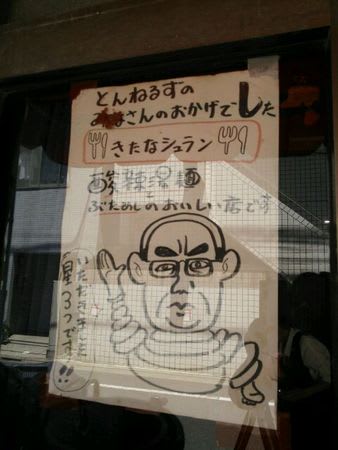 とんねるずの
みなさんのおかげでした
きたなシュラン
酸辣湯麺
ぶためしのおいしい店です
いただきました
星3つです!!